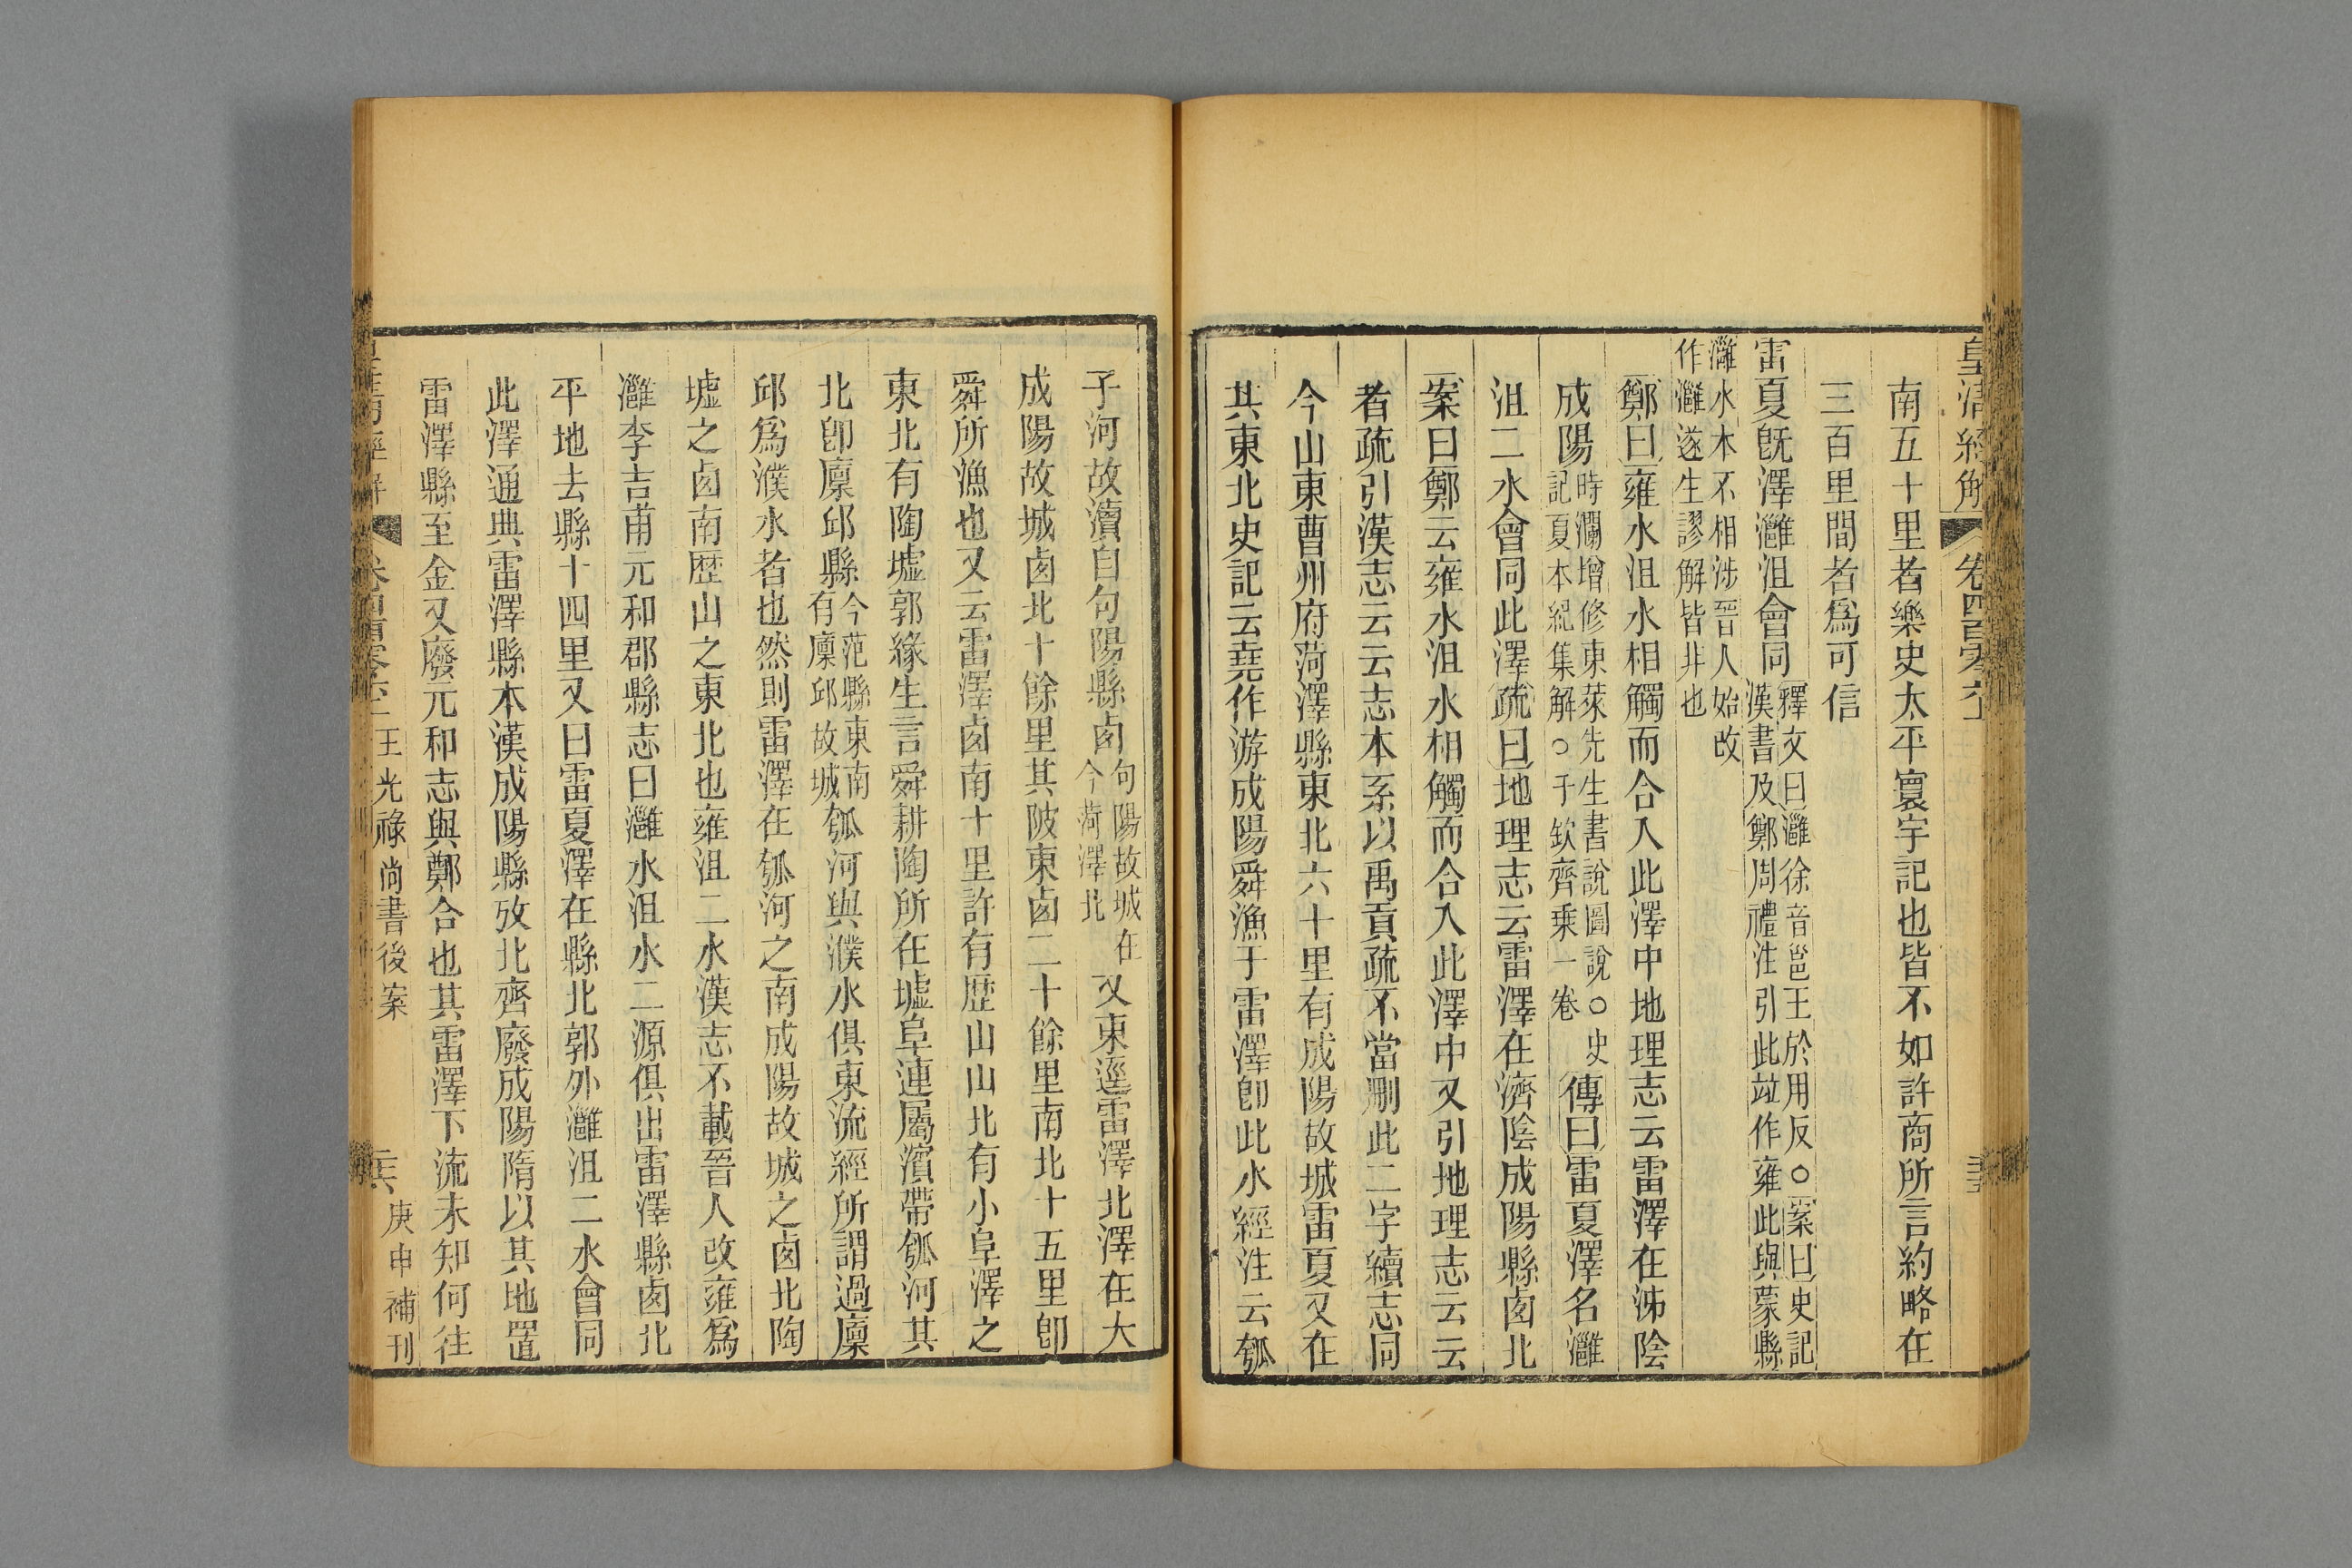 皇清經解 卷四百零六
南五十里者樂史太平寰宇記也皆不如許商所言約略在
三百里間者爲可信
雷夏旣澤灉沮會同釋文曰灉徐音邕王於用反○案曰史記
漢書及鄭周禮注引此竝作雍此與蒙縣
灉水本不相涉晉人始改
作灉遂生謬解皆非也
鄭曰雍水沮水相觸而合入此澤中地理志云雷澤在泲陰
成陽時瀾增修東萊先生書說圖說○史
記夏本紀集解○于欽齊乘一卷傳曰雷夏澤名灉
沮二水會同此澤疏曰地理志云雷澤在濟陰成陽縣㔽北
案曰鄭云雍水沮水相觸而合入此澤中又引地理志云云
者疏引漢志云云志本系以禹貢疏不當刪此二字續志同
今山東曹州府菏澤縣東北六十里有成陽故城雷夏又在
其東北史記云堯作游成陽舜漁于雷澤卽此水經注云瓠
子河故瀆自句陽縣㔽句陽故城在
今菏澤北又東逕雷澤北澤在大
成陽故城㔽北十餘里其陂東㔽二十餘里南北十五里卽
舜所漁也又云雷澤㔽南十里許有歷山山北有小阜澤之
東北有陶墟郭緣生言舜耕陶所在墟阜連屬濱帶瓠河其
北卽廩邱縣今范縣東南
有廩邱故城瓠河與濮水俱東流經所謂過廩
邱爲濮水者也然則雷澤在瓠河之南成陽故城之㔽北陶
墟之㔽南歷山之東北也雍沮二水漢志不載晉人改雍爲
灉李吉甫元和郡縣志曰灉水沮水二源俱出雷澤縣㔽北
平地去縣十四里又曰雷夏澤在縣北郭外灉沮二水會同
此澤通典雷澤縣本漢成陽縣攷北齊廢成陽隋以其地置
雷澤縣至金又廢元和志與鄭合也其雷澤下流未知何往
王光祿尚書後案 庚申補刊